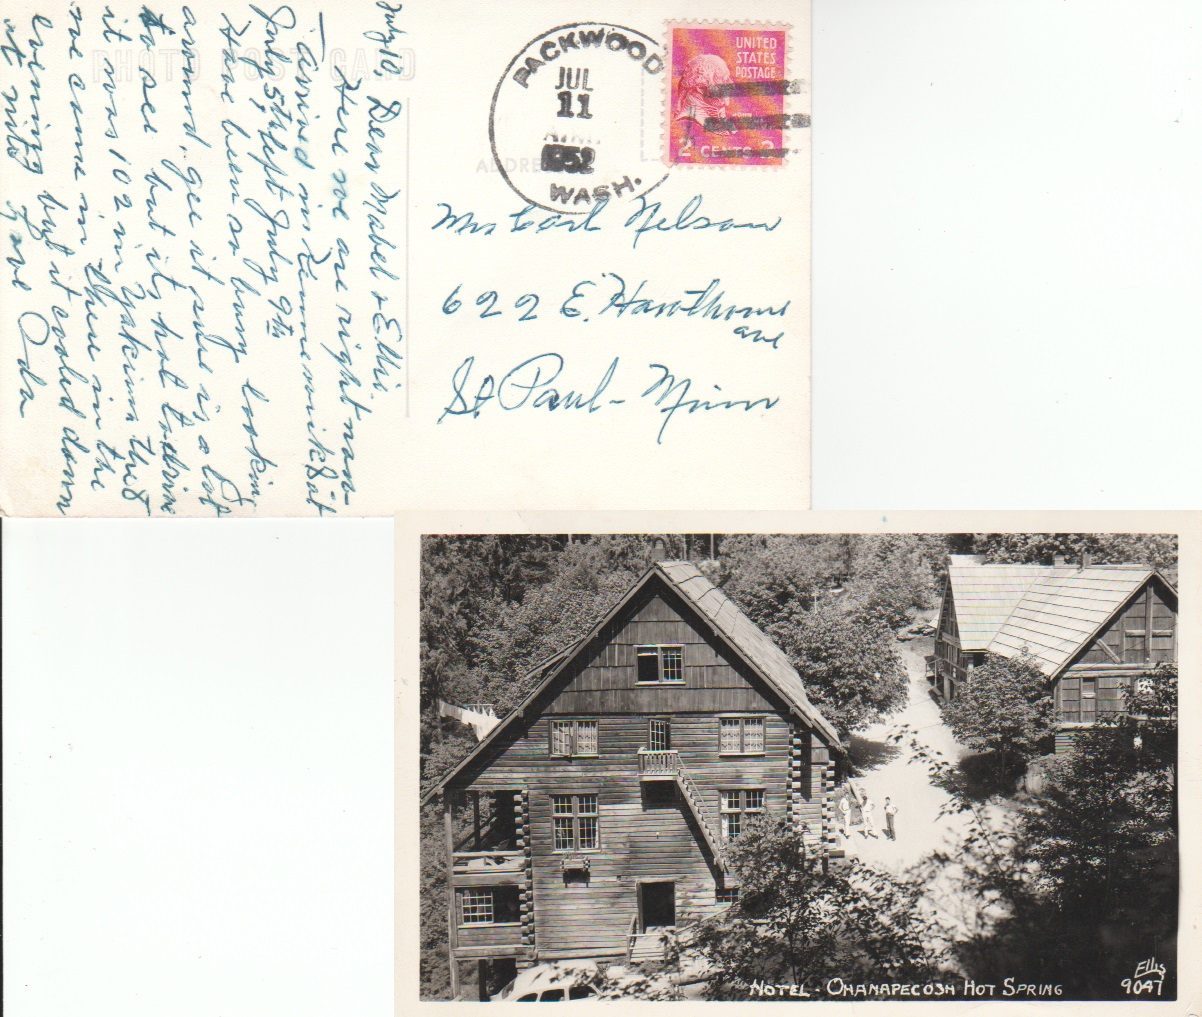 PHOTO POST CARD
July 10
Dear Mabel & Ellis.
Here we are right now
arrived in Kennewick Sat
July 5th left July 9th
Have been so busy looking
around, gee it sure is a lot
to see but it's hot to drive
it was 102 in Yakima the 8
we came in there in the
evening but it cooled down
at nite Love Ida
PACKWOOD
JUL
11
1952
WASH.
UNITED
STATES
POSTAGE
2 CENTS 2
ADDRE
Mrs Carl Nelson
622 E. Hawthorne
ave
St Paul - Minn
HOTEL - OHANAPECOSH HOT SPRING
Ellis
9047